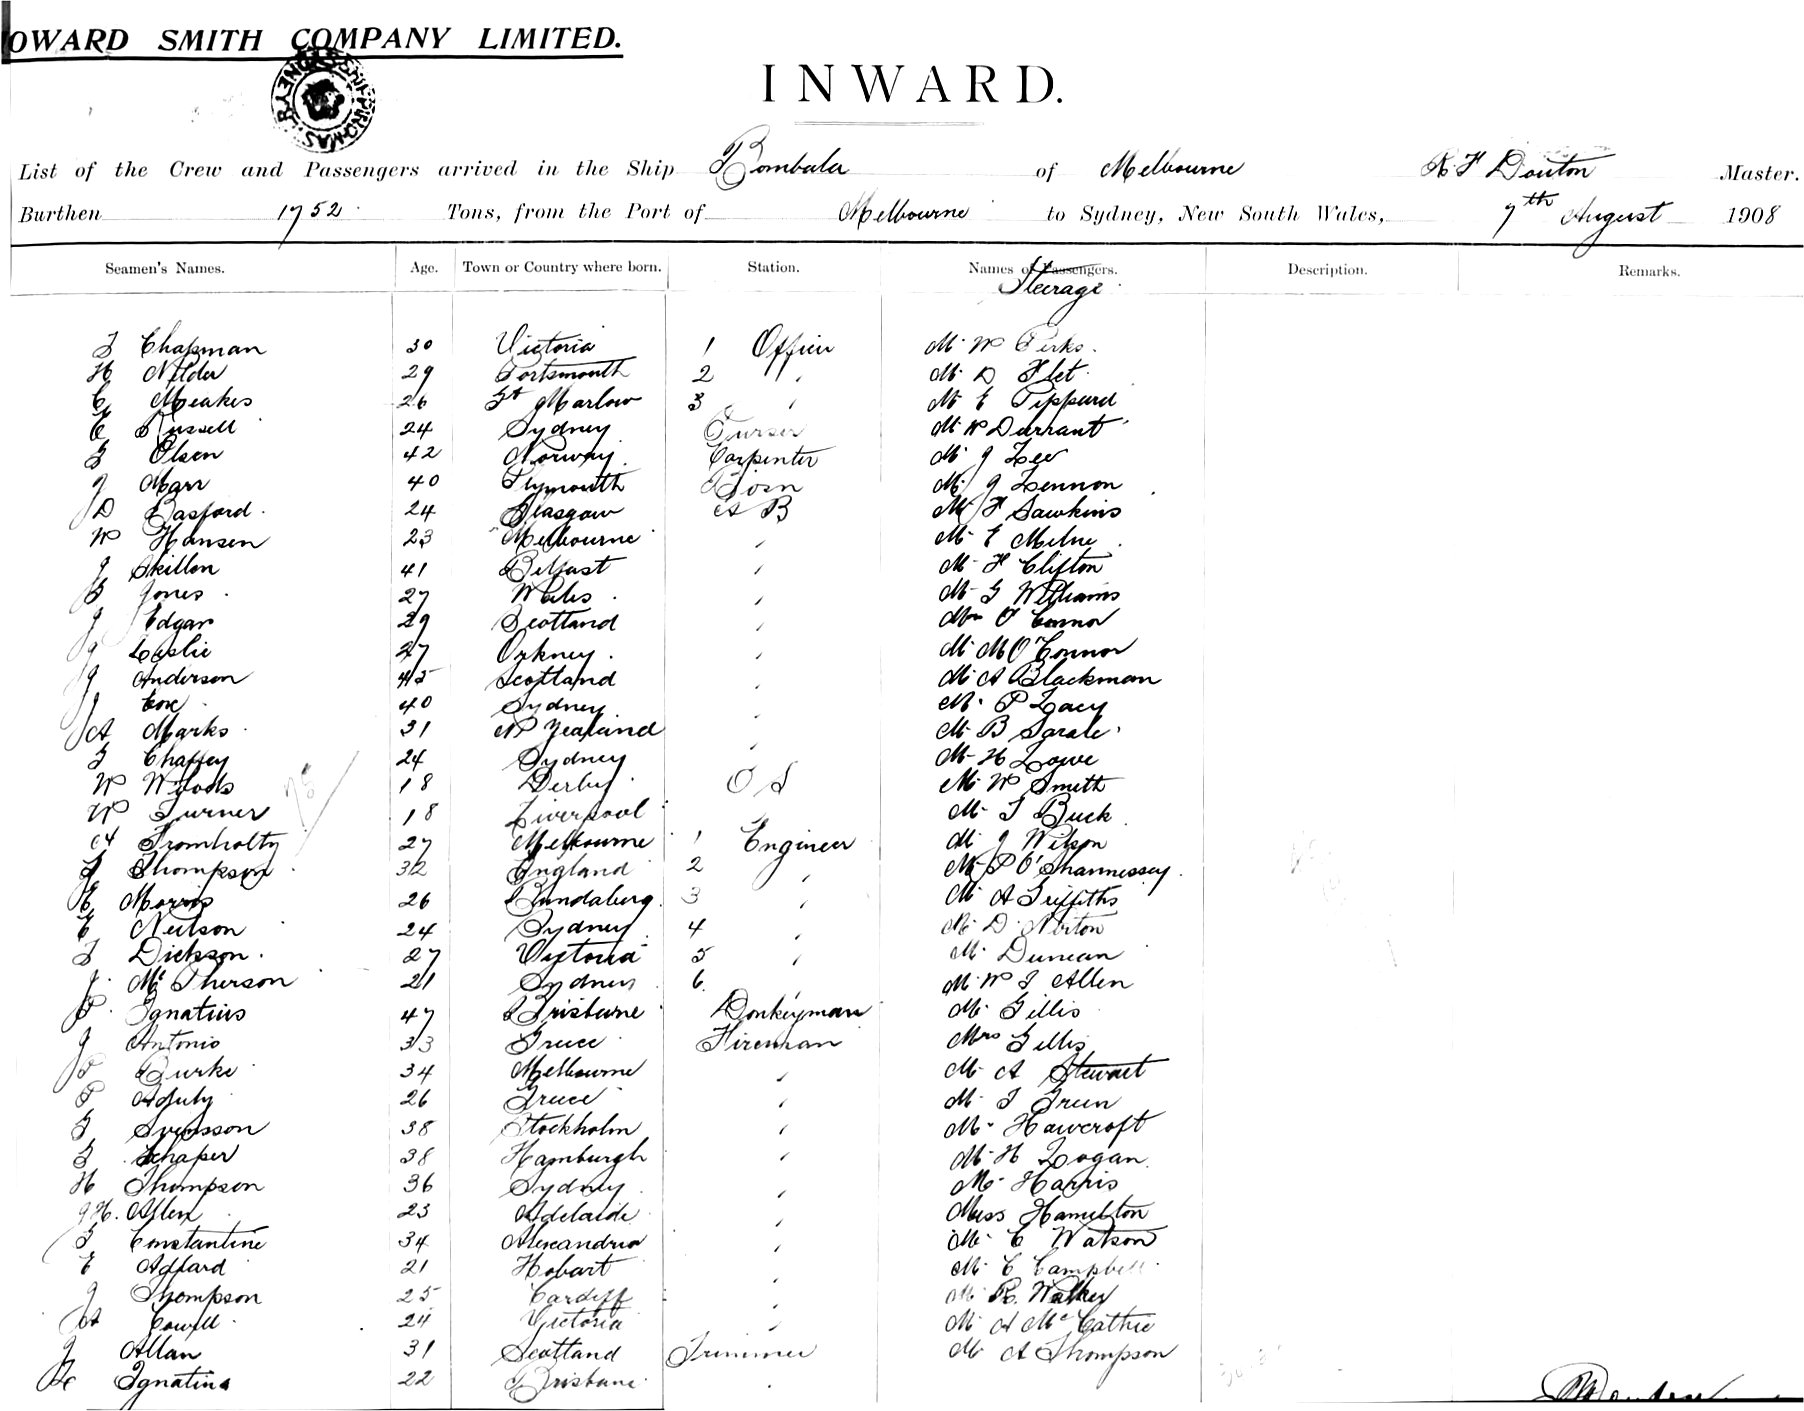 OWARD SMITH COMPANY LIMITED.
INWARD.
List of the Crew and Passengers arrived in the Ship Bombala of Melbourne R. F Douton Master.
Burthen 1752 Tons, from the Port of Melbourne to Sydney, New South Wales, 7th August 1908
Seamen's Names. Age. Town or Country where born. Station. Names of Passengers. Description. Remarks.
Steerage
F Chapman 30 Victoria 1 Officer Mr W Perks.
H Nilder 29 Portsmouth 2 " Mr D Flet
C Meakes 26 Gt Marlow 3 " Mr E Pippard
E Russell 24 Sydney Purser Mr W Durrant
G Olsen 42 Norway Carpenter Mr J Lee
J Marr 40 Plymouth Bosn Mr J Lennon
D Basford 24 Glasgow A B Mr F Sawkins
W Hansen 23 Melbourne " Mr E Milne
J Skillen 41 Belfast " Mr F Clifton
G Jones 27 Wales " Mr G Williams
J Edgar 29 Scotland " O'Connor
J Leslie 27 Orkney " Mr M O'Connor
J Anderson 45 Scotland " Mr A Blackman
J Cox 40 Sydney " Mr P Lacy
A Marks 31 N Zealand " Mr B
F Chaffey 24 Sydney " Mr H Lowe
W Woods 18 Derby O S Mr W Smith
W Turner 18 Liverpool Mr T Buck
A Tromholty 27 Melbourne 1 Engineer Mr J Wilson
J Thompson 32 England 2 " Mr P O'Shannessey
E Morris 26 Bundaberg 3 " Mr A Griffiths
E Neilson 24 Sydney 4 " Mr D Norton
F Dickson 27 Victoria 5 " Mr Duncan
J McPherson 21 Sydney 6 Mr W J Allen
P Ignatius 47 Brisbane Donkeyman Mr Gillis
J Antonio 33 Greece Fireman Mrs Gillis
P Burke 34 Melbourne " Mr A Stewart
P 26 Greece " Mr T Green
F Svensson 38 Stockholm " Mr Hawcroft
F Schaper 38 Hamburgh " Mr H Logan
H Thompson 36 Sydney " Mr Harris
J H. Allen 23 Adelaide " Miss Hamilton
F Constantine 34 Alexandria " Mr C Watson
E Adfard 21 Hobart " Mr C Campbell
J Thompson 25 Cardiff " Mr R. Walker
A Cowell 24 Victoria " Mr A McCathie
J Allan 31 Scotland Trimmer Mr A Thompson
Ignatius 22 Brisbane "